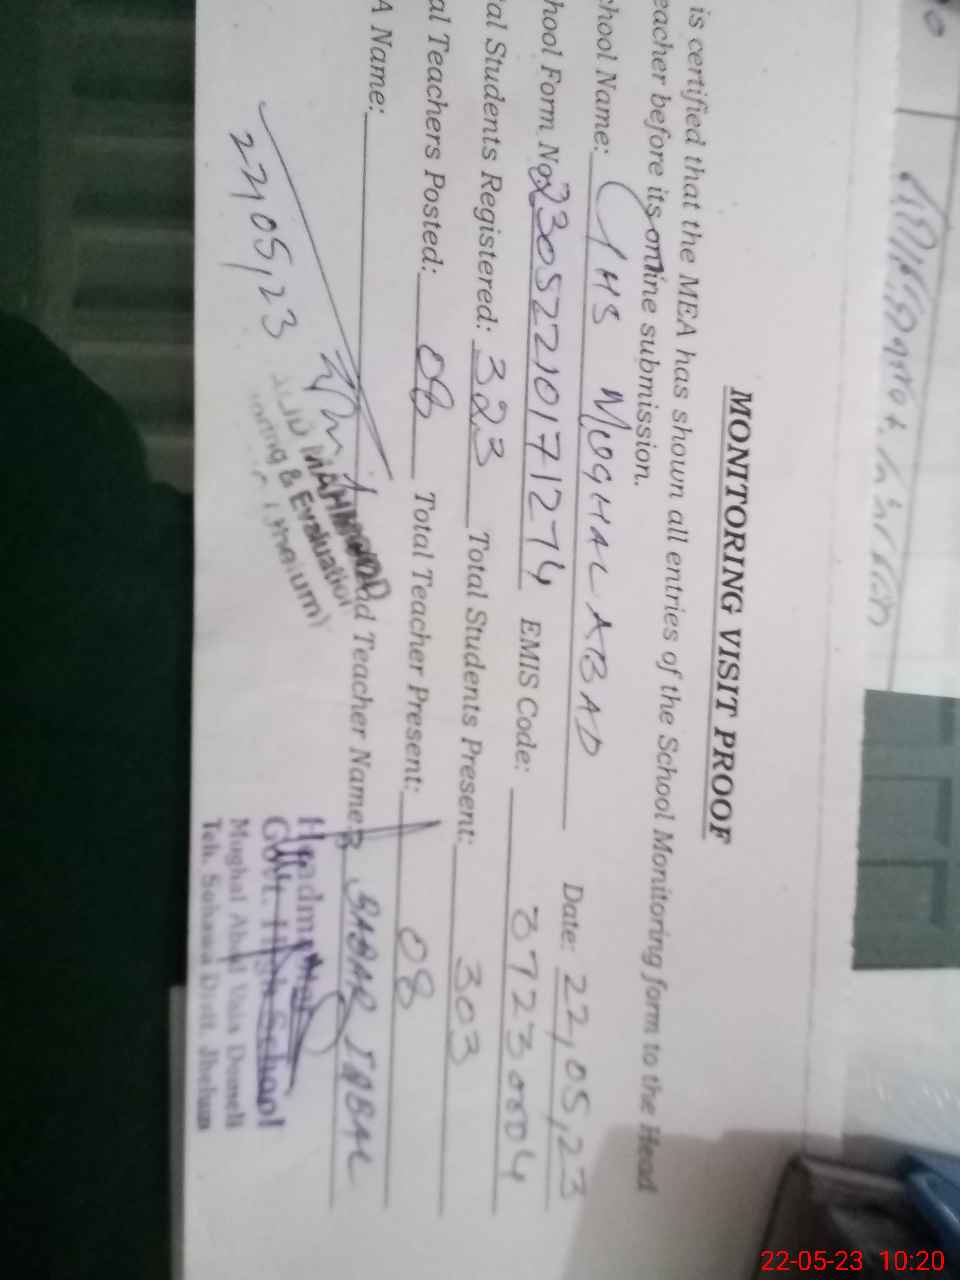 MONITORING VISIT PROOF
is certified that the MEA has shown all entries of the School Monitoring form to the Head
eacher before its online submission.
chool Name: GHS MUGHAL ABAD Date: 22,05,23
hool Form No. 23052210171274 EMIS Code: 37230004
al Students Registered: 323 Total Students Present: 303
al Teachers Posted: 08 Total Teacher Present: 08
A Name: Teacher Name: BABAR IQBAL
22,05,23
MAHMOOD
& Evaluation
(Jhelum)
Headmaster
Govt. High School
Mughal Abad Domeli
Teh. Sohawa Distt. Jhelum
22-05-23 10:20